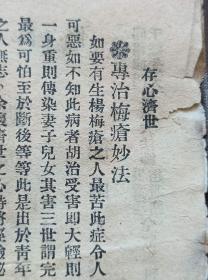 存心濟世
專治梅瘡妙法
如要有生楊梅瘡之人最苦此症令人
可惡如不知此病者胡治受害即大輕則
一身重則傳染妻子兒女其害三世謂完
最為可怕至於斷後等等此是出於青年
之人無志